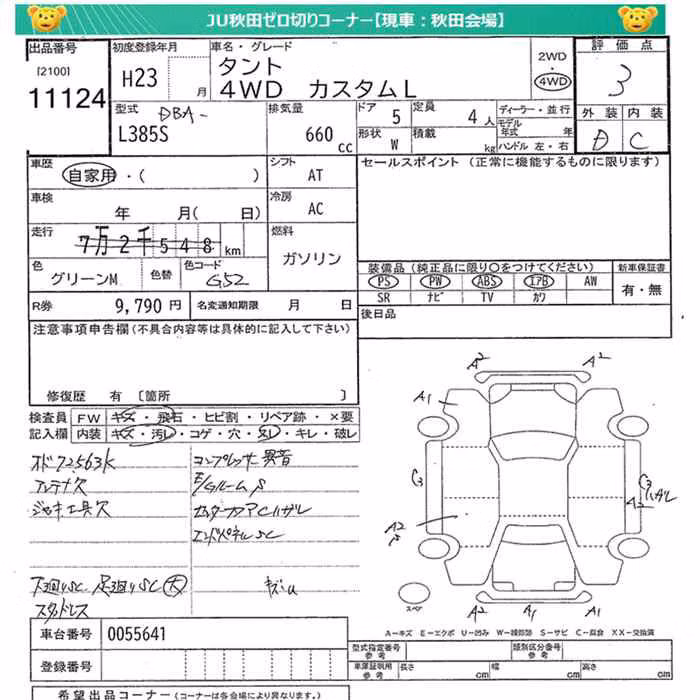 JU秋田ゼロ切りコーナー【現車：秋田会場】
出品番号
[2100]
11124
初度登録年月
H23 月
車名・グレード
タント
4WD カスタムL
2WD
・
4WD
評価点
3
外装 内装
D C
型式 DBA-
L385S
排気量
660 cc
ドア 5
定員 4 人
形状 W
積載 kg
ディーラー・並行
モデル年式 年
ハンドル 左・右
車歴
自家用・( )
シフト
AT
セールスポイント (正常に機能するものに限ります)
車検
年 月( 日)
冷房
AC
走行
7万2千548 km
燃料
ガソリン
色
グリーンM
色替
色コード
G52
装備品 (純正品に限り○をつけてください)
PS PW ABS エアB AW
SR ナビ TV カワ
新車保証書
有・無
R券 9,790 円
名変通知期限 月 日
後日品
注意事項申告欄(不具合内容等は具体的に記入して下さい)
修復歴 有 [箇所 ]
検査員
記入欄
FW キズ・飛石・ヒビ割・リペア跡・×要
内装 キズ・汚レ・コゲ・穴・ヌレ・キレ・破レ
オド72563k
アンテナ欠
ジャキ工具欠
コンプレッサー異音
E/Gルーム S
センターフロアCハガレ
エンドパネルSC
下廻りSC 足廻りSC 大
スタッドレス
キズU
A2
A2
A1
C3
C3
ハガレ
A2
A2
S
スペア
A2
A1
A1
A－キズ E－エクボ U－凹み W－補修跡 S－サビ C－腐食 XX－交換済
車台番号 0055641
登録番号
型式指定番号
参考
類別区分番号
参考
車庫証明用
参考
長さ cm
幅 cm
高さ cm
希望出品コーナー (コーナーは各会場により異なります。)